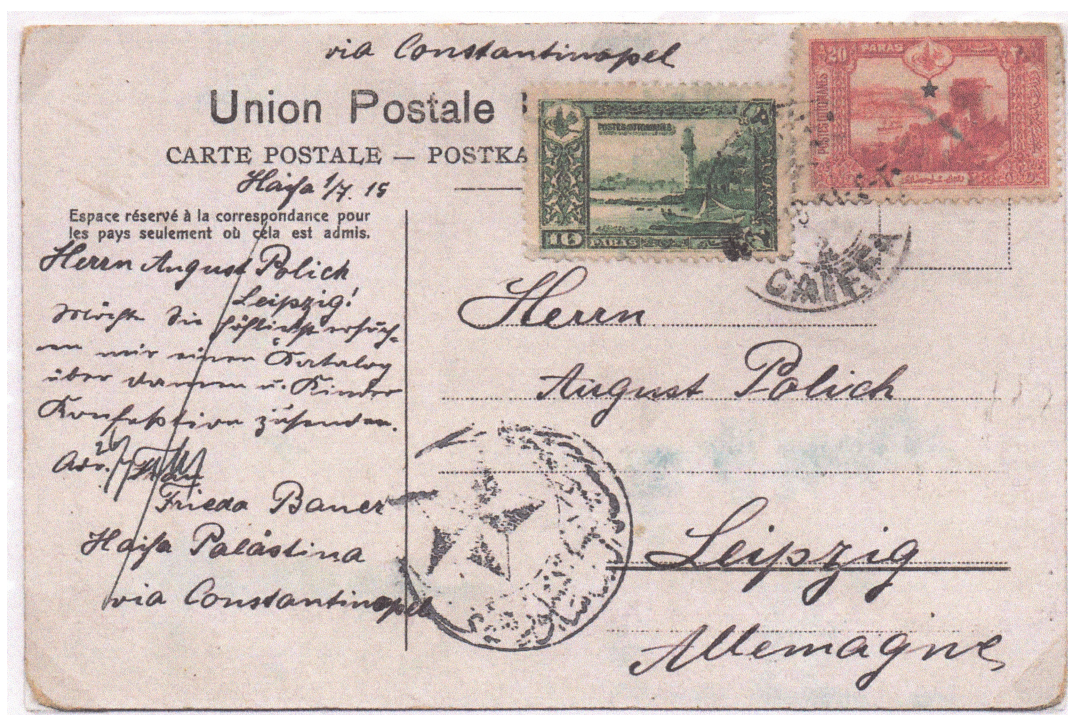 via Constantinopel
Union Postale
CARTE POSTALE — POSTKA
Haifa 1/7. 15
Espace réservé à la correspondance pour
les pays seulement où cela est admis.
Herrn August Polich
Leipzig!
Möchte Sie höflichst ersuch-
en mir einen Katalog
über Damen u. Kinder
Konfektion zusenden.
Frieda Bauer
Haifa Palästina
via Constantinopel
POSTES OTTOMANES
10 PARAS
20 PARAS
POSTES OTTOMANES
CAIFFA
Herrn
August Polich
Leipzig
Allemagne